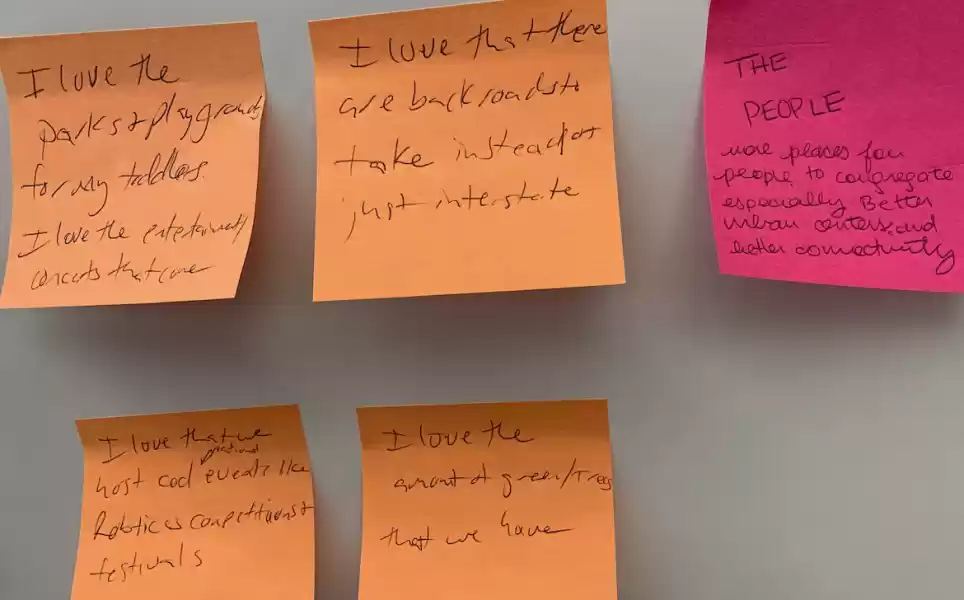 I love the
parks + playgrounds
for my toddlers.
I love the entertainment/
concerts that come
I love that there
are backroads to
take instead of
just interstate
THE
PEOPLE
more places for
people to congregate
especially Better
urban centers and
better connectivity
I love that we
host cool national events like
Robotics competitions +
festivals
I love the
amount of green/trees
that we have